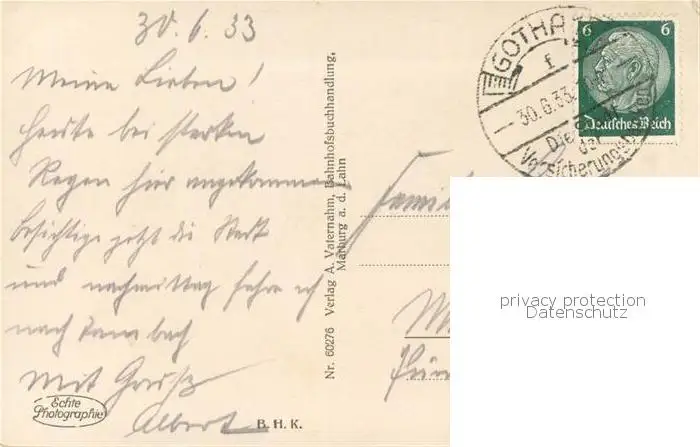 30.6.33
Meine Lieben!
Heute bei starken
Regen hier angekommen
besichtige jetzt die Stadt
und nachmittag fahre ich
nach Tambach
Mit Gruß
Albert
Echte
Photographie
B.H.K.
Nr. 60276 Verlag A. Vaternahm, Bahnhofsbuchhandlung,
Marburg a. d. Lahn
GOTHA
f
30.6.33
Die
der
Versicherungs
6 6
Deutsches Reich
privacy protection
Datenschutz